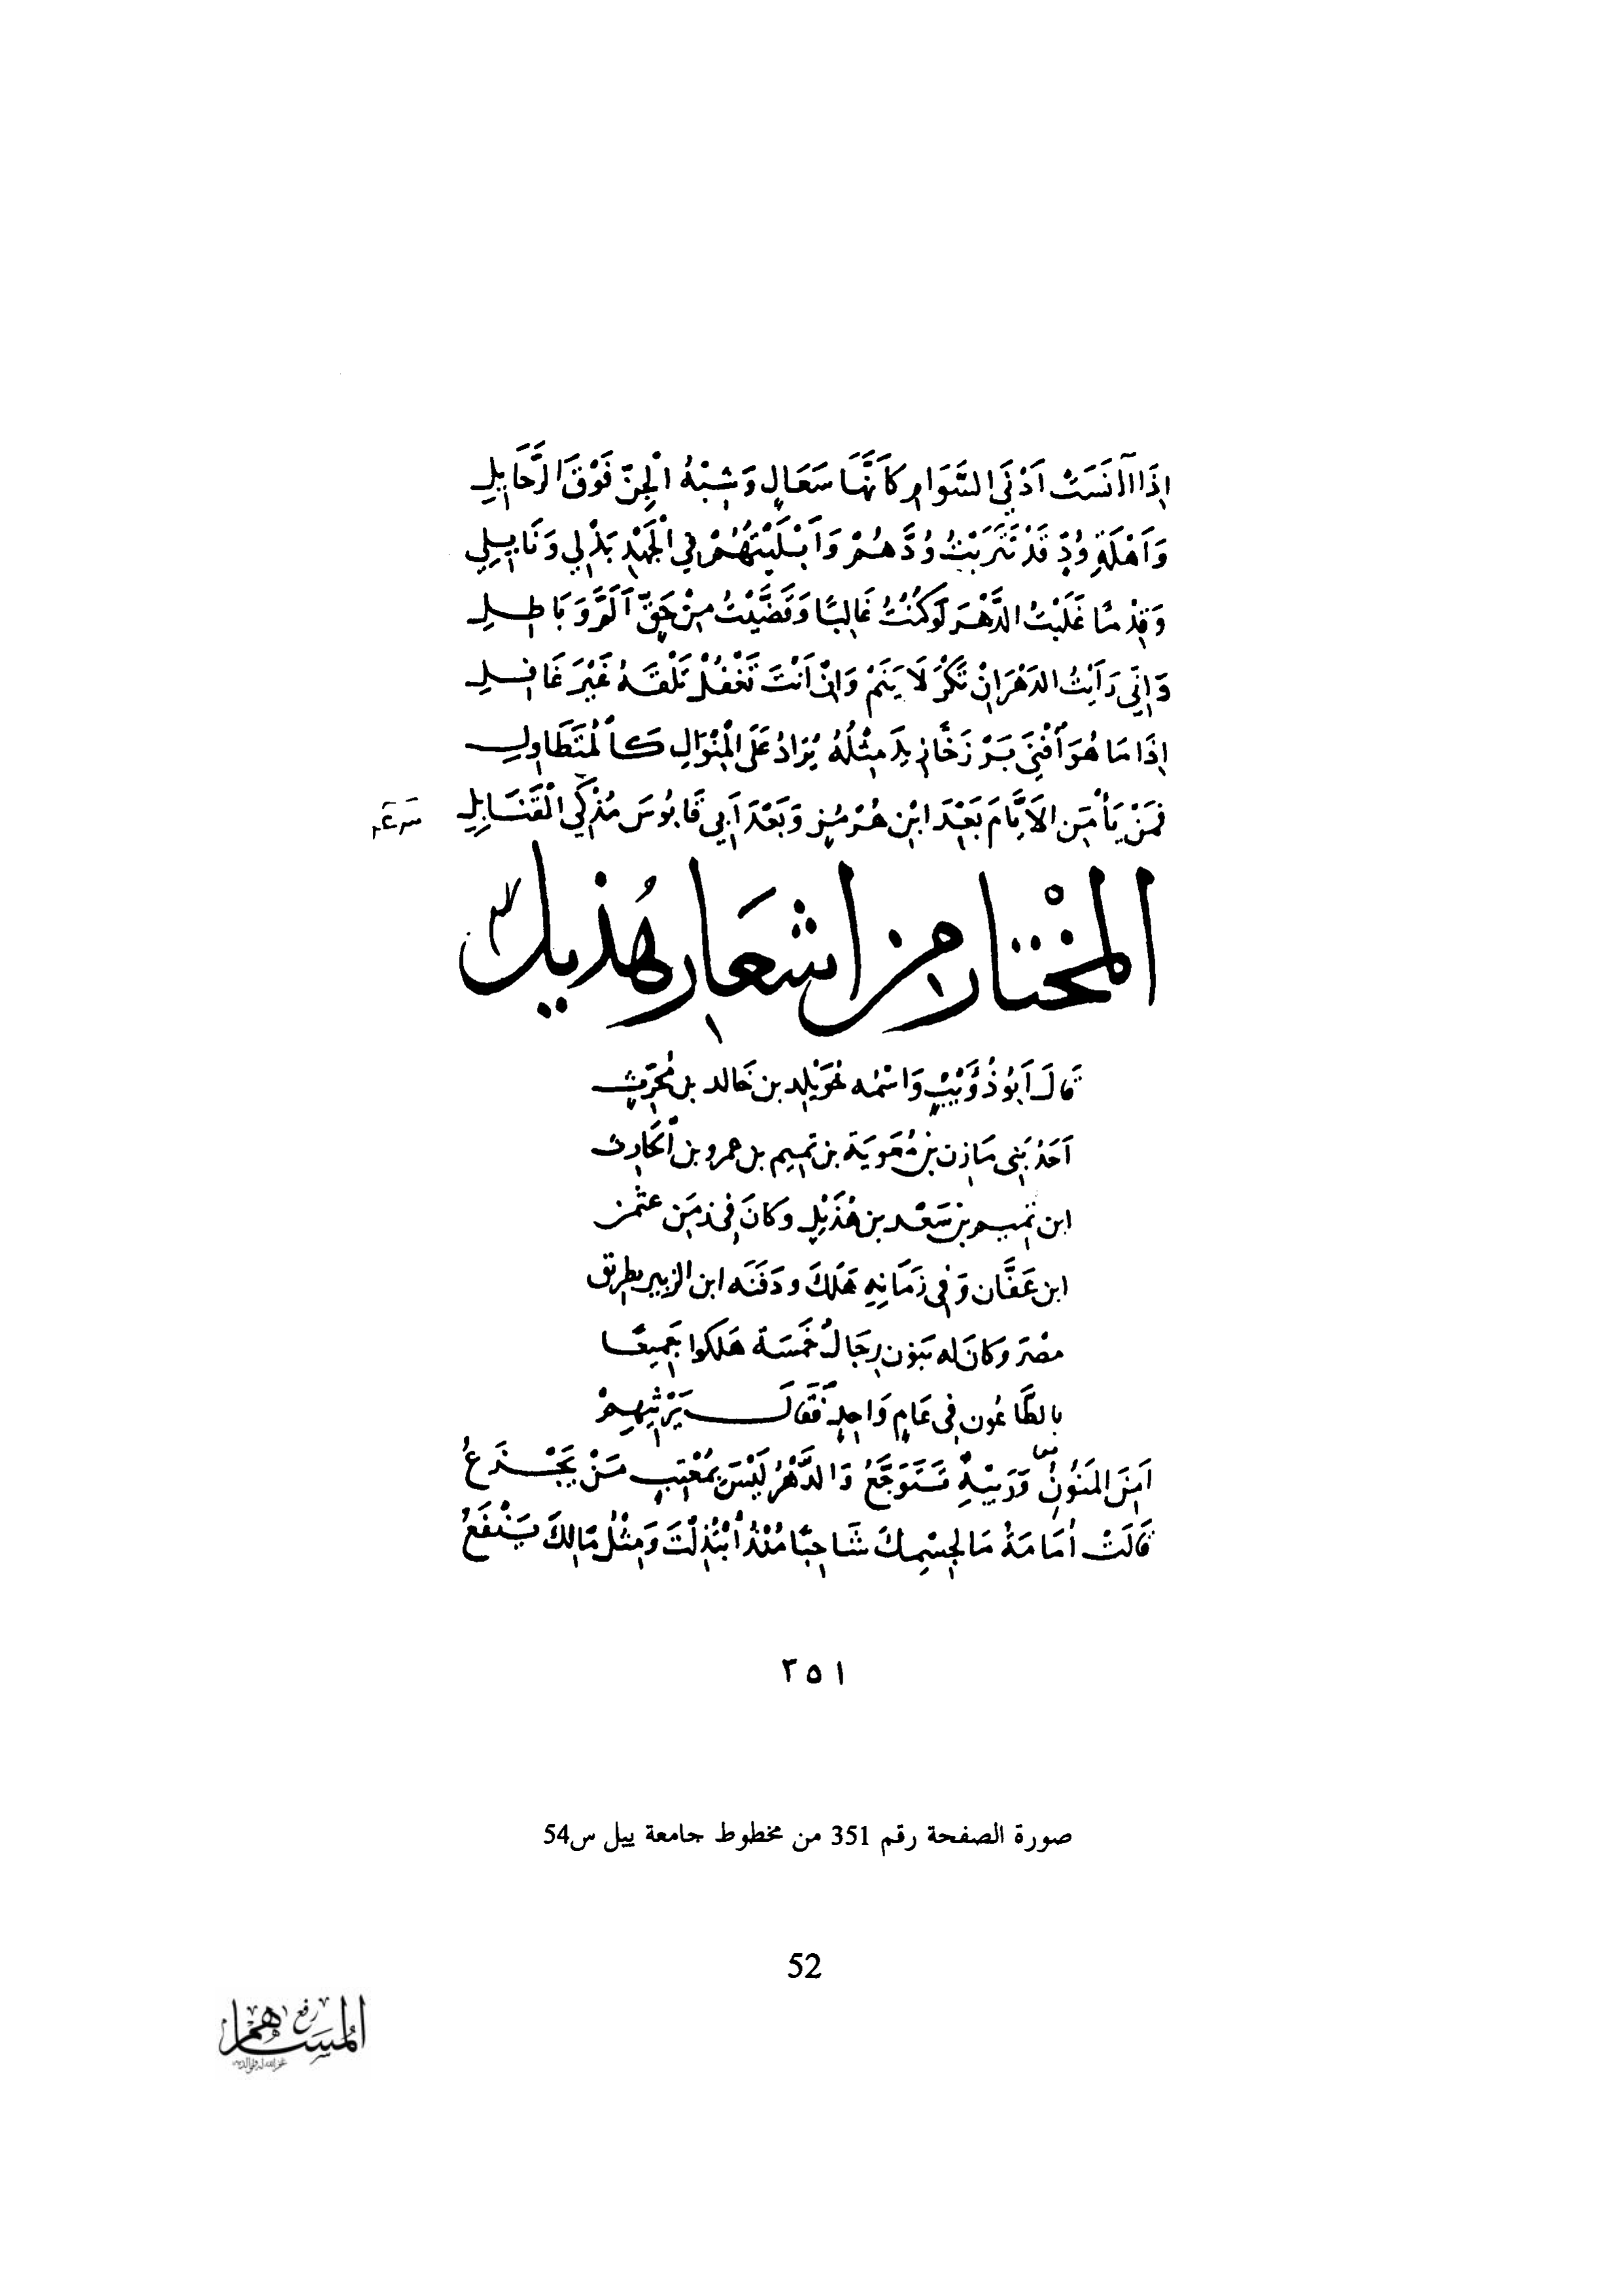 إِذَا آنَسَتْ أَدْنَى السَّوَامِ كَأَنَّهَا سَعَالٍ وَشِبْهُ الْجِنِّ فَوْقَ الرَّحَايِلِ
وَأَهْلَةِ وُدٍّ قَدْ تَبَرَّيْتُ وُدَّهُمْ وَأَبْلَيْتُهُمْ فِي الْجَهْدِ بَذْلِي وَنَايِلِي
وَقِدْمًا غَلَبْتُ الدَّهْرَ لَوْ كُنْتُ غَالِبًا وَقَضَّيْتُ مِنْ حَقٍّ أَلَمَّ وَبَاطِلِ
وَإِنِّي رَأَيْتُ الدَهْرَ إِنْ تَكْرَ لَا يَنَمْ وَإِنْ أَنْتَ تَغْفُلْ تَلْقَهُ غَيْرَ غَافِلِ
إِذَا مَا هُوَ أَفْنَى عَلَى الْمِنْوَالِ كَالْمُتَطَاوِلِ
فَمَنْ يَأْمَنِ الأَيَّامَ بَعْدَ ابْنِ هُرْمُزٍ وَبَعْدَ أَبِي قَابُوسَ مُذْكِي الْقَنَابِلِ
المُخْتَار مِن اشْعَارِ هُذيل
قَالَ أَبُو ذُؤَيْبٍ وَاسْمُه خُوَيْلِد بن خَالد بن مُحَرِّثٍ
أَحَدُ بَنِي مَازِن بْنِ مُعَوِيَة بن تَمِيم بن عمرو بن الْحَارِث
ابن تَمِيم بن سَعْد بن هُذَيْلٍ وكَانَ فِي زمَنِ عثمن
ابن عَفَّان وَفِي زَمَانِهِ هَلَكَ ودَفَنَه ابن الزبير بطريق
مصْرَ وكَانَ له بَنون رِجَالٌ خَمْسَة هَلَكوا جَمِيعًا
بالطَّاعُون فِي عَامٍ وَاحِدٍ فَقَالَ يَرْثِيهِمْ
أَمِنَ المَنُونِ وَرَيْبِهِ تَتَوَجَّعُ وَالدَّهْرُ لَيْسَ بِمُعْتِبٍ مَنْ يَجْزَعُ
قَالَتْ أُمَامَةُ مَا لِجِسْمِكَ شَاحِبًا مُنْذُ ابْتُذِلْتَ وَمِثْلُ مَالِكَ يَنْفَعُ
٣٥١
صورة الصفحة رقم 351 من مخطوط جامعة ييل س54
52
رفع
المساهم